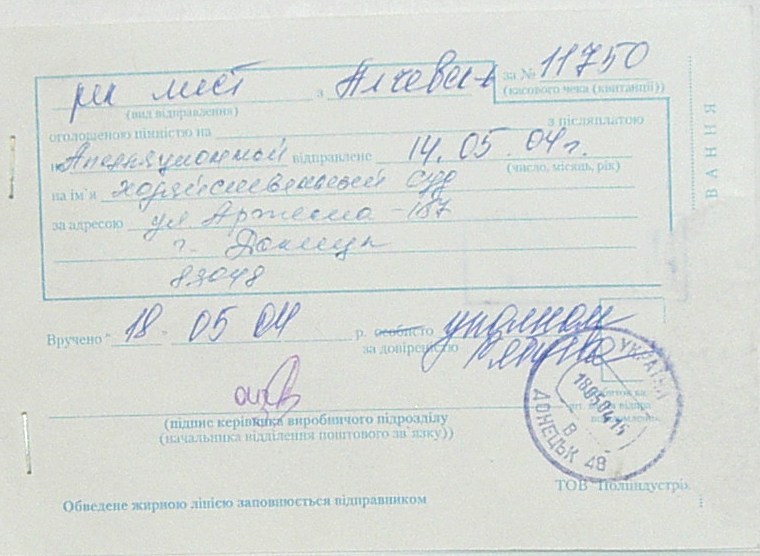 рек лист з Алчевск за № 11750
(вид відправлення) (касового чека (квитанції))
оголошеною цінністю на з післяплатою
Апелляционной відправлене 14.05.04г.
(число, місяць, рік)
на ім'я хозяйственный суд
за адресою ул. Артема -187
г. Донецк
83048
Вручено 18 05 04 р. особисто уполном
за довіреністю
(підпис керівника виробничого підрозділу
(начальника відділення поштового зв'язку))
УКРАЇНА
180504 15
В
ДОНЕЦЬК 48
ТОВ "Поліндустрі
Обведене жирною лінією заповнюється відправником
ВАННЯ